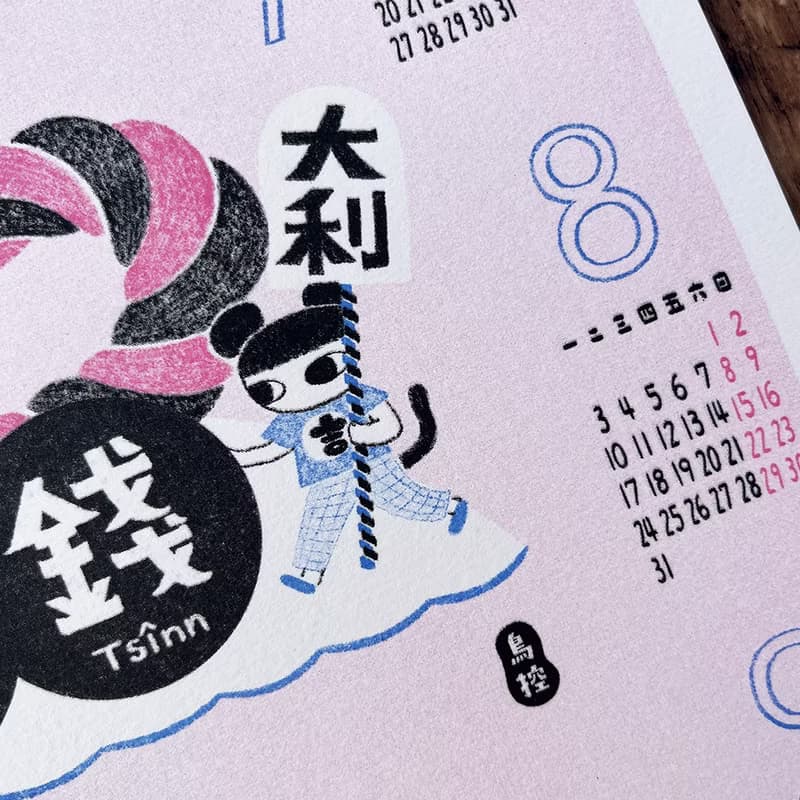 20 21
27 28 29 30 31
大利
吉
錢
Tsînn
8
一 二 三 四 五 六 日
1 2
3 4 5 6 7 8 9
10 11 12 13 14 15 16
17 18 19 20 21 22 23
24 25 26 27 28 29 30
31
鳥控